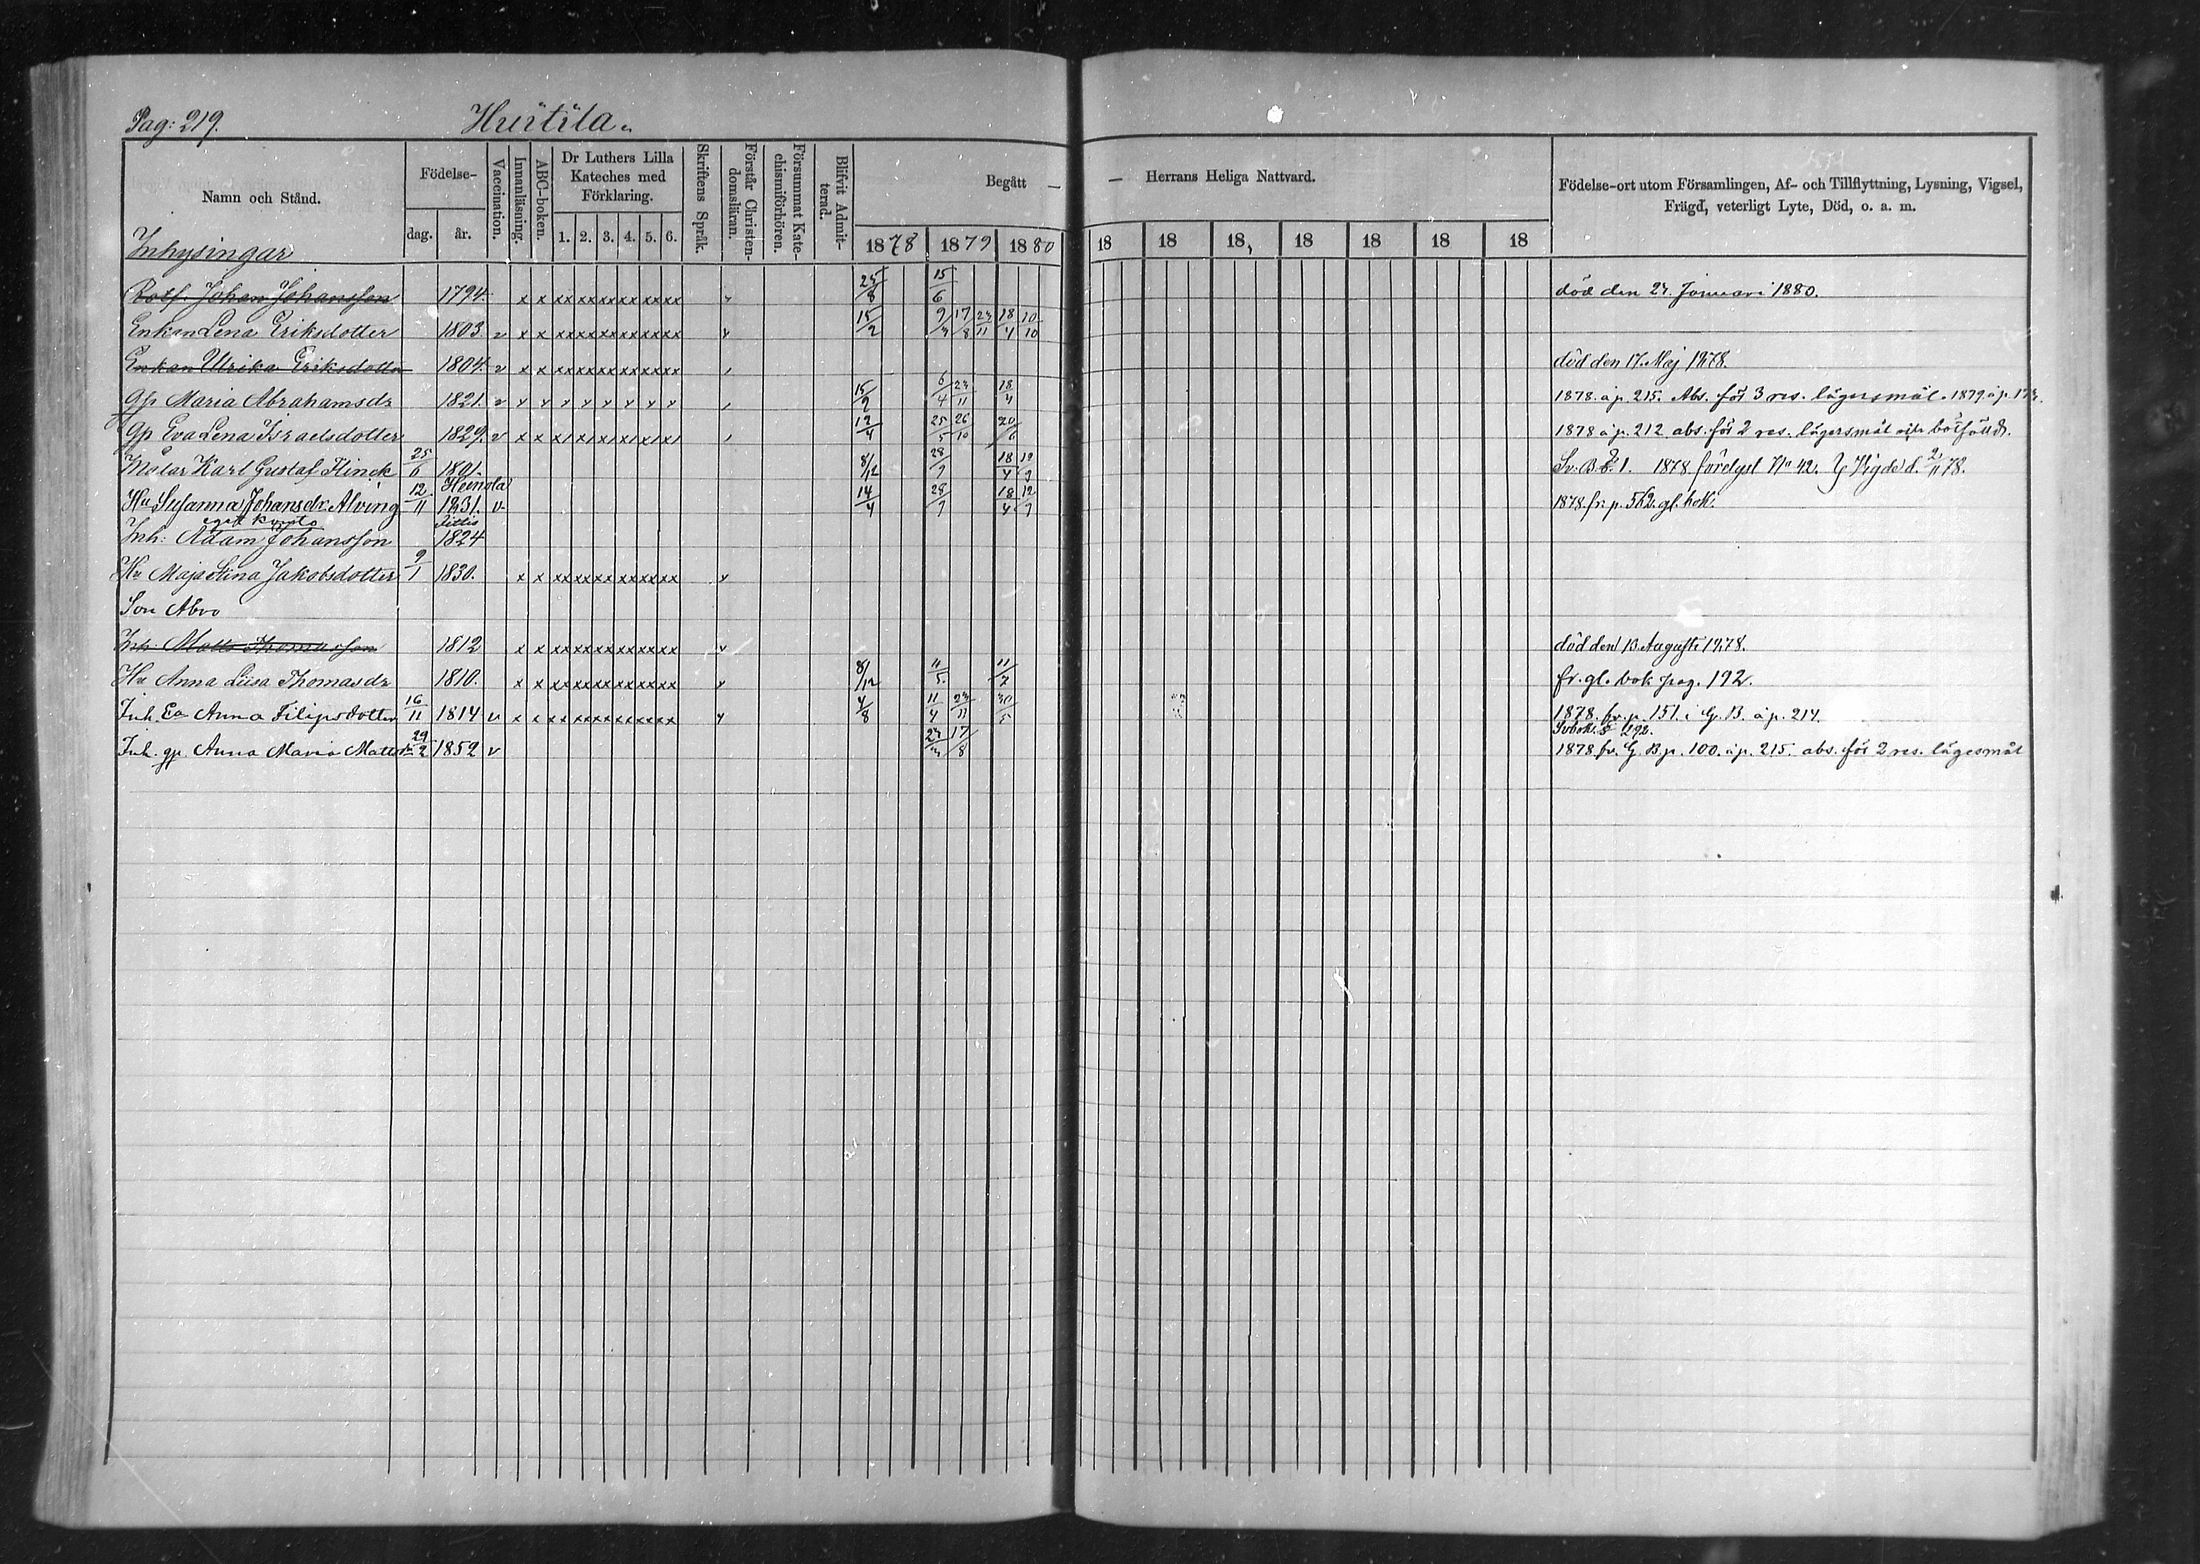 Pag: 219. Huitila.
Namn och Stånd. Födelse- dag. år. Vaccination. Innanläsning. ABC-boken. Dr Luthers Lilla Kateches med Förklaring. 1. 2. 3. 4. 5. 6. Skriftens Språk. Förstår Christendomsläran. Försummat Katechismiförhören. Blifvit Admitterad. Begått — — Herrans Heliga Nattvard. Födelse-ort utom Församlingen, Af- och Tillflyttning, Lysning, Vigsel, Frägd, veterligt Lyte, Död, o. a. m.
Inhysingar 1878 1879 1880 18 18 18, 18 18 18 18
Rotf. Johan Johansson 1794. x x xx xx xx xx xx xx 25/8 15/6 död den 27. Januari 1880.
Enkan Lena Eriksdotter 1803. v x x xx xx xx xx xx xx x 15/2 9/3 17/8 23/11 18/4 10/10
Enkan Ulrika Eriksdotter 1804. v x x xx xx xx xx xx xx död den 17. Maj 1878.
Gp Maria Abrahamsdr 1821. v x x x x x x x x 15/2 6/4 23/11 18/4 1878 à p. 215. Abs. för 3 res. lägersmål. 1879 à p.
Gp Eva Lena Israelsdotter 1829. v x x 12/4 25/5 26/10 20/6 1878 à p. 212 abs. för 2 res. lägersmål
Målar Karl Gustaf Flinck 25/6 1801. 8/12 28/9 18/4 1878 förelyst No 42.
Heinola
Hu Susanna Johansdr Alving 12/11 1831. v 14/4 28/9 18/4 12/9 1878. fr. p. 582. gl. bok.
Jittis
Inh: Adam Johansson 1824
Hu Maja Stina Jakobsdotter 9/1 1830. x x xx xx xx xx xx xx x
Son Abro
Inh. Matts Thomasson 1812 x x xx xx xx xx xx xx x död den 13. Augusti 1878.
Hu Anna Lisa Thomasdr 1810. x x xx xx xx xx xx xx x 8/12 11/5 11/7 fr. gl. bok pag. 192.
Inh. Ea Anna Filipsdotter 16/11 1814 v x x xx xx xx xx xx xx x 4/8 11/4 23/11 30/5 1878. fr. p. 151. i G. B. à p. 217.
Inh. gp. Anna Maria Mattsdr 29/2 1852 v 23/3 17/8 1878. fr. G. B. p. 100. à p. 215. abs. för 2 res. lägesmål